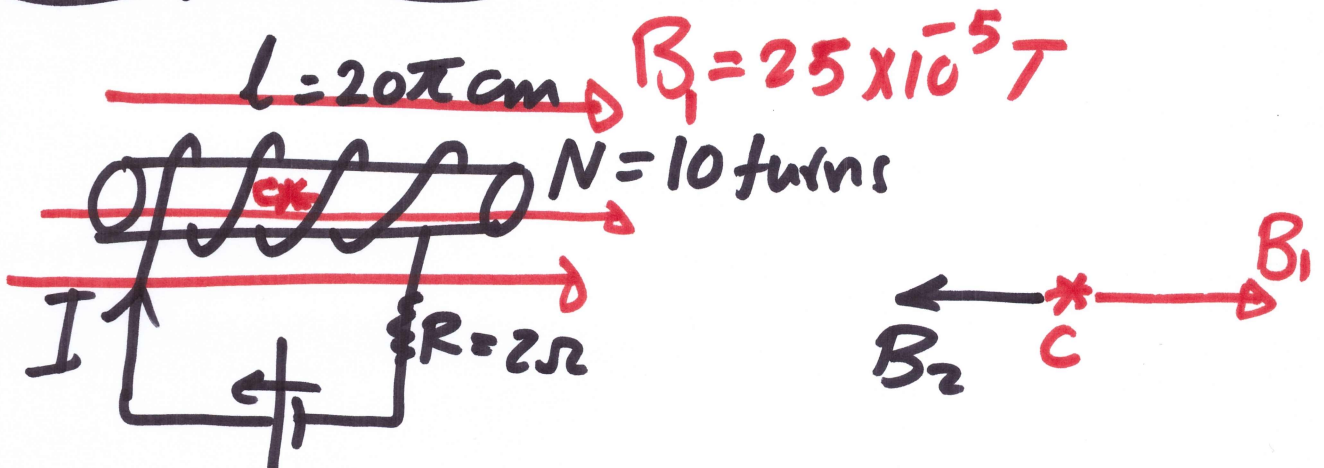 l = 20π cm
B₁ = 25 × 10⁻⁵ T
C
N = 10 turns
I
R = 2Ω
B₁
B₂
C